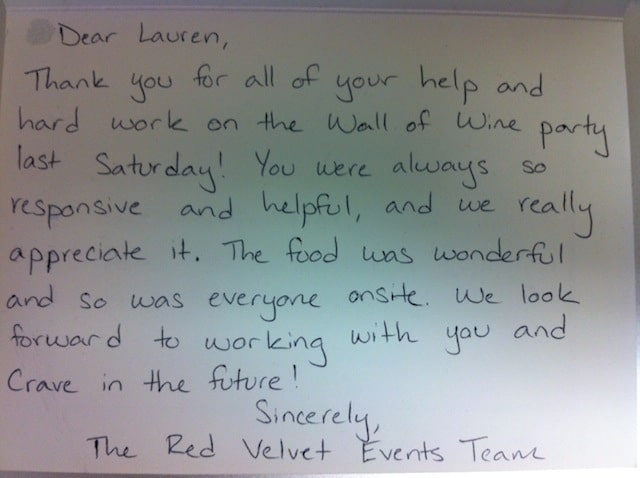 Dear Lauren,
Thank you for all of your help and
hard work on the Wall of Wine party
last Saturday! You were always so
responsive and helpful, and we really
appreciate it. The food was wonderful
and so was everyone onsite. We look
forward to working with you and
Crave in the future!
Sincerely,
The Red Velvet Events Team